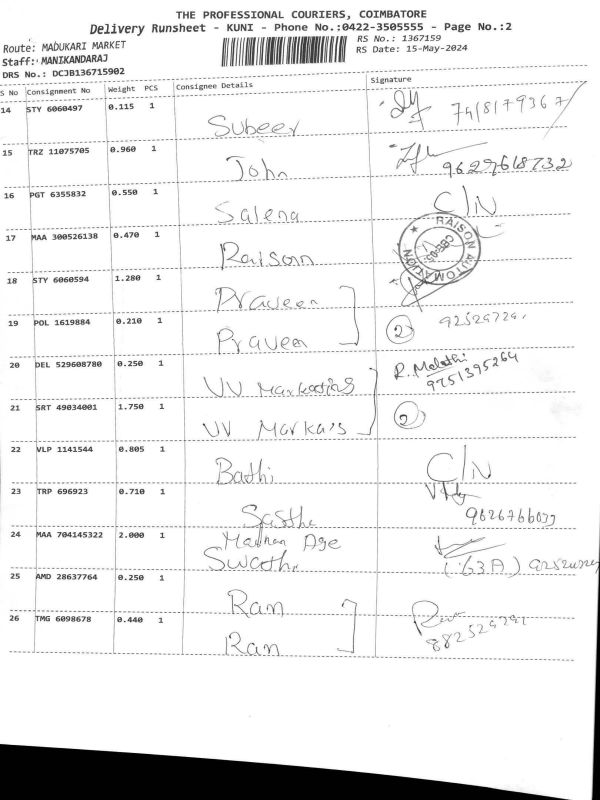 THE PROFESSIONAL COURIERS, COIMBATORE
Delivery Runsheet - KUNI - Phone No.:0422-3505555 - Page No.:2
Route: MADUKARI MARKET
RS No.: 1367159
Staff: MANIKANDARAJ
RS Date: 15-May-2024
DRS No.: DCJB136715902
S No Consignment No Weight PCS Consignee Details Signature
14 STY 6060497 0.115 1 Subeer
15 TRZ 11075705 0.960 1 John 9629618732
16 PGT 6355832 0.550 1 Salena C/N
17 MAA 300526138 0.470 1 Raison
RAISON AUTOMATION
18 STY 6060594 1.280 1 Praveen
19 POL 1619884 0.210 1 Praveen 2
20 DEL 529608780 0.250 1 UV R. Malathi
9751395264
21 SRT 49034001 1.750 1 UV 2
22 VLP 1141544 0.805 1 Bathi C/N
23 TRP 696923 0.710 1 Sasthe
24 MAA 704145322 2.000 1 Age
Swathi
25 AMD 28637764 0.250 1 Ram
26 TMG 6098678 0.440 1 Ram